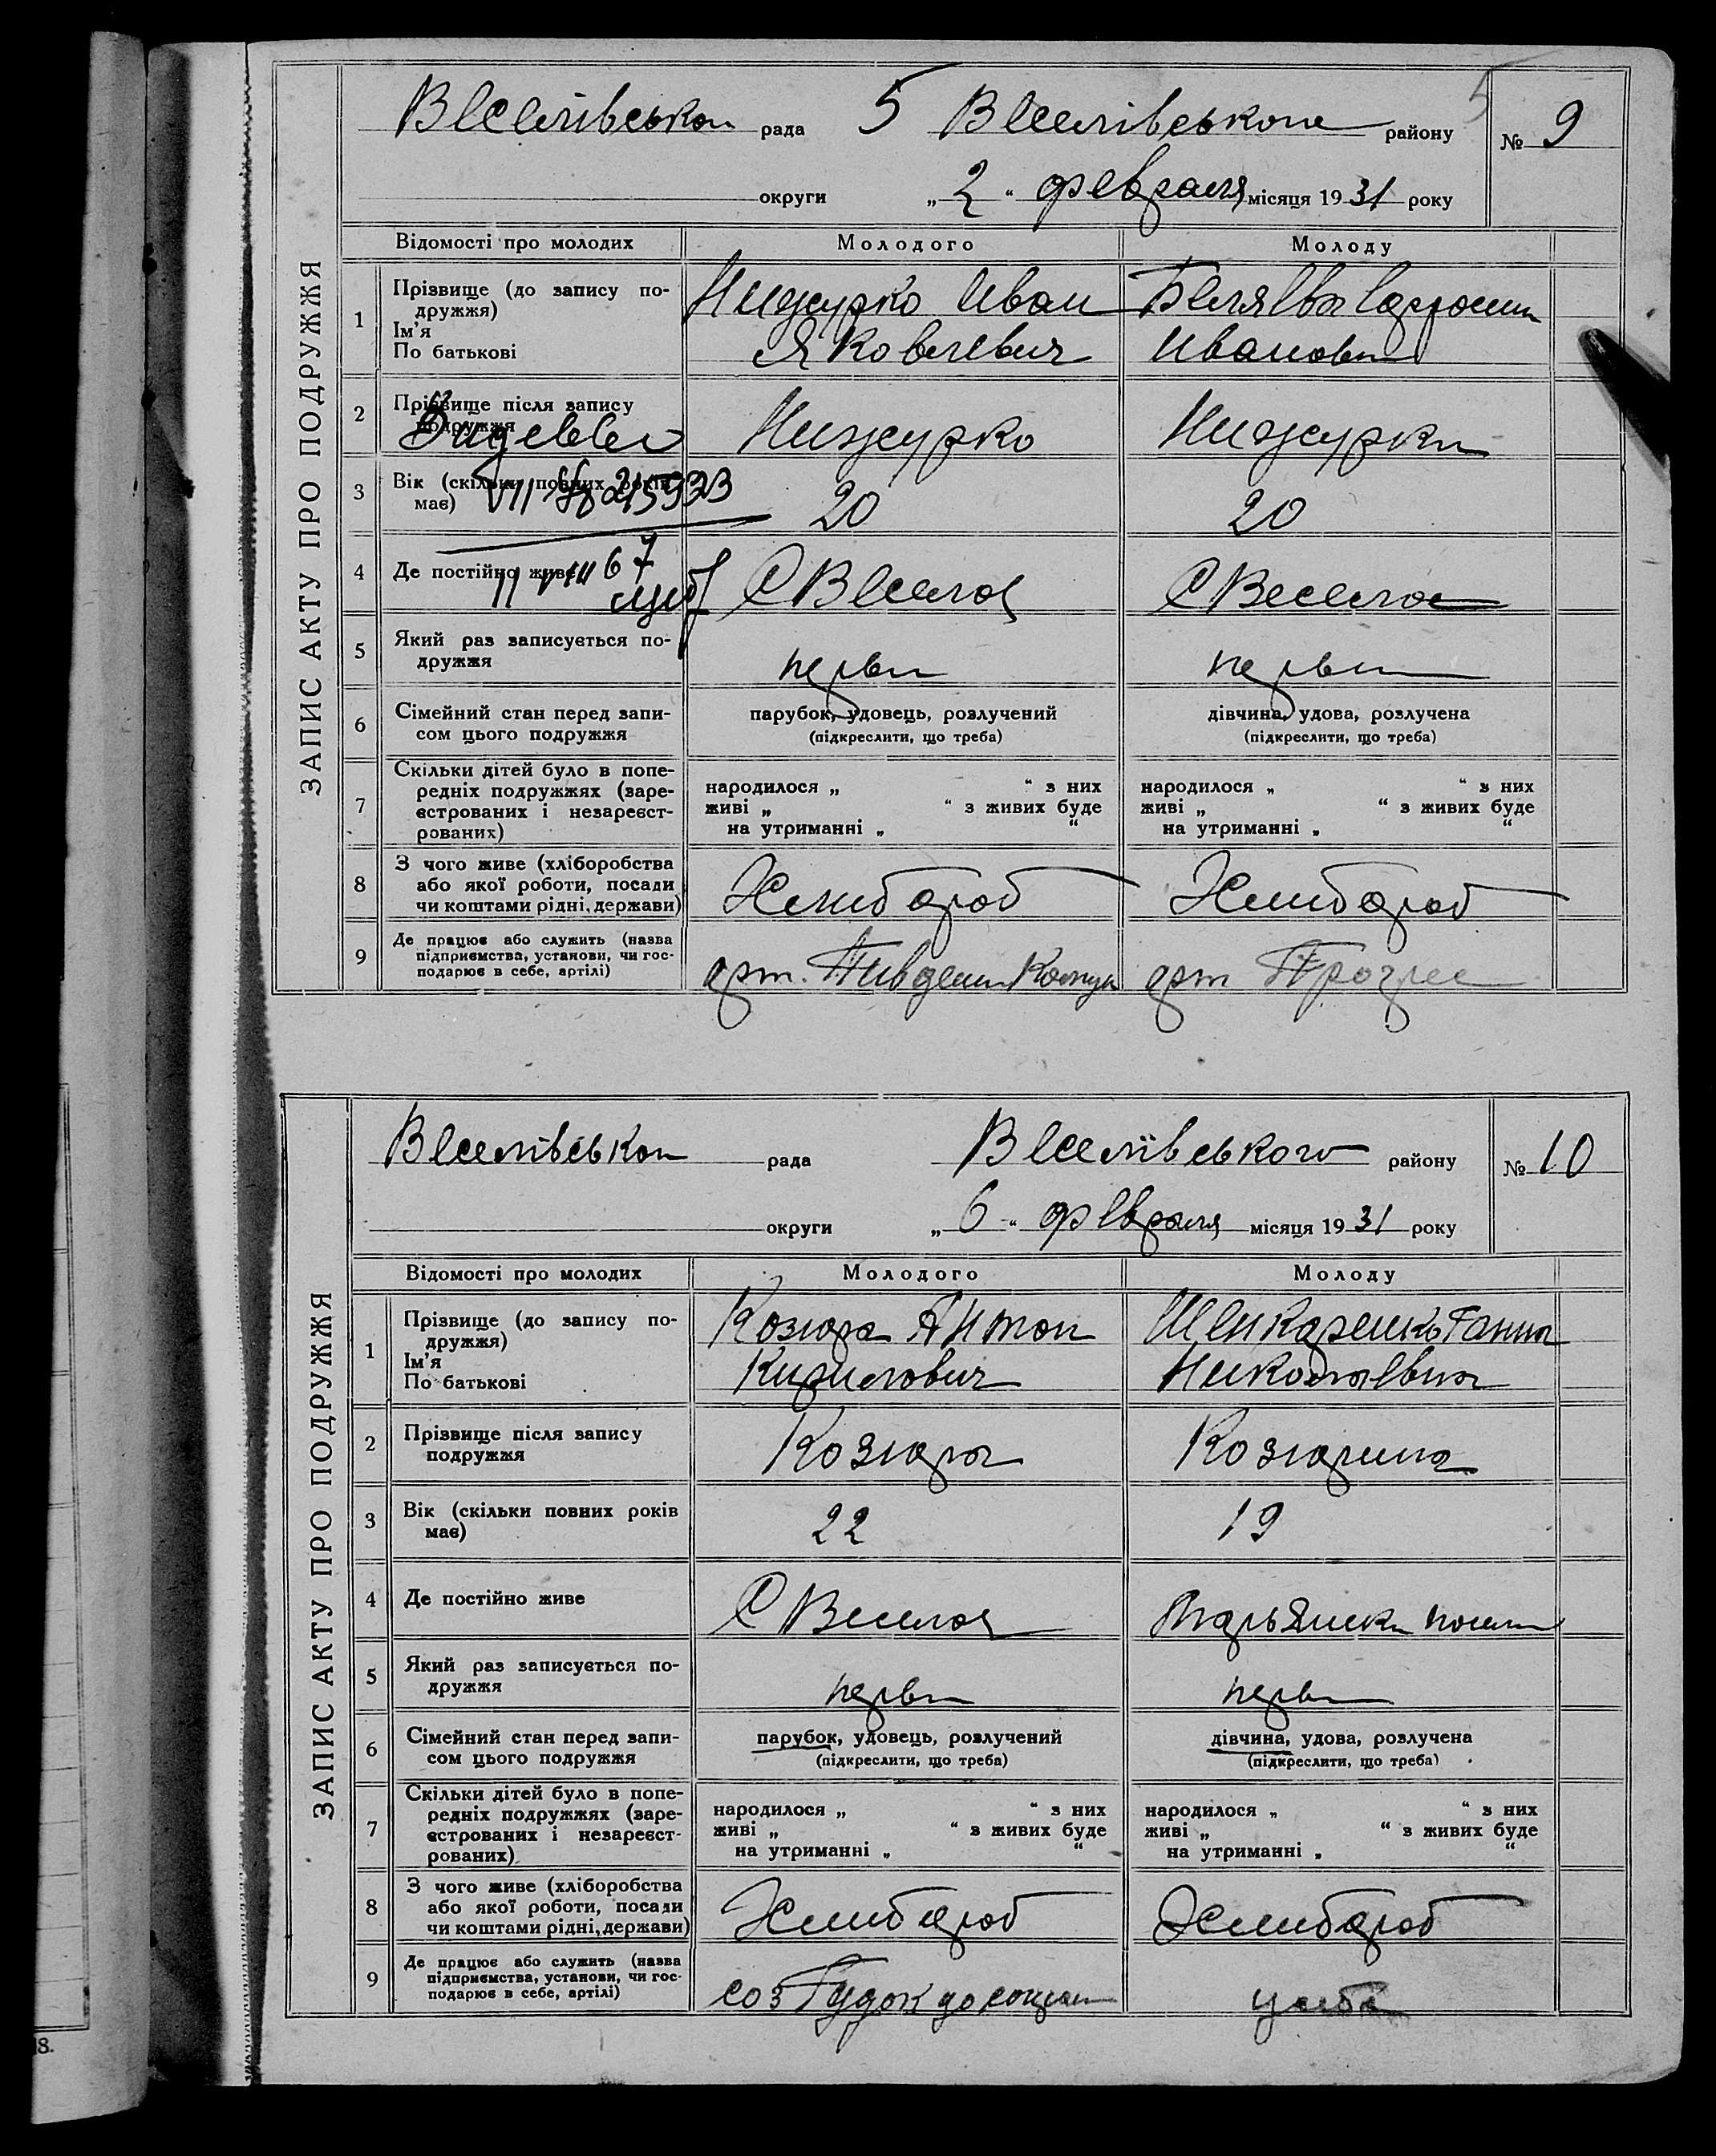 5
Веселівськои рада 5 Веселівського району № 9
округи „2“ февраля місяця 1931 року
ЗАПИС АКТУ ПРО ПОДРУЖЖЯ
Відомості про молодих Молодого Молоду
1 Прізвище (до запису по-
дружжя)
Ім'я
По батькові
Нижурко Иван
Яковлевич
Ивановн
2 Прізвище після запису
подружжя
Нижурко Нижурки
3 Вік (скільки повних років
має)
20 20
VII
4 Де постійно живе
С Веселое С Веселое
11 VIII 67
5 Який раз записується по-
дружжя
первы первы
6 Сімейний стан перед запи-
сом цього подружжя
парубок, удовець, розлучений
(підкреслити, що треба)
дівчина, удова, розлучена
(підкреслити, що треба)
7 Скільки дітей було в попе-
редніх подружжях (заре-
єстрованих і незареєст-
рованих)
народилося „ “ з них
живі „ “ з живих буде
на утриманні „ “
народилося „ “ з них
живі „ “ з живих буде
на утриманні „ “
8 З чого живе (хліборобства
або якої роботи, посади
чи коштами рідні, держави)
Хлибороб Хлибороб
9 Де працює або служить (назва
підприємства, установи, чи гос-
подарює в себе, артілі)
арт. Пивденн Комун арт Прогрес
Веселівськои рада Веселівського району № 10
округи „6“ февраля місяця 1931 року
ЗАПИС АКТУ ПРО ПОДРУЖЖЯ
Відомості про молодих Молодого Молоду
1 Прізвище (до запису по-
дружжя)
Ім'я
По батькові
Козюра Антон
Кирилович
Шенкаренко Ганна
Николаевна
2 Прізвище після запису
подружжя
Козюра Козюрина
3 Вік (скільки повних років
має)
22 19
4 Де постійно живе
С Веселое
5 Який раз записується по-
дружжя
первы первы
6 Сімейний стан перед запи-
сом цього подружжя
парубок, удовець, розлучений
(підкреслити, що треба)
дівчина, удова, розлучена
(підкреслити, що треба)
7 Скільки дітей було в попе-
редніх подружжях (заре-
єстрованих і незареєст-
рованих)
народилося „ “ з них
живі „ “ з живих буде
на утриманні „ “
народилося „ “ з них
живі „ “ з живих буде
на утриманні „ “
8 З чого живе (хліборобства
або якої роботи, посади
чи коштами рідні, держави)
Хлибороб Хлибороб
9 Де працює або служить (назва
підприємства, установи, чи гос-
подарює в себе, артілі)
соз Гудок
8.